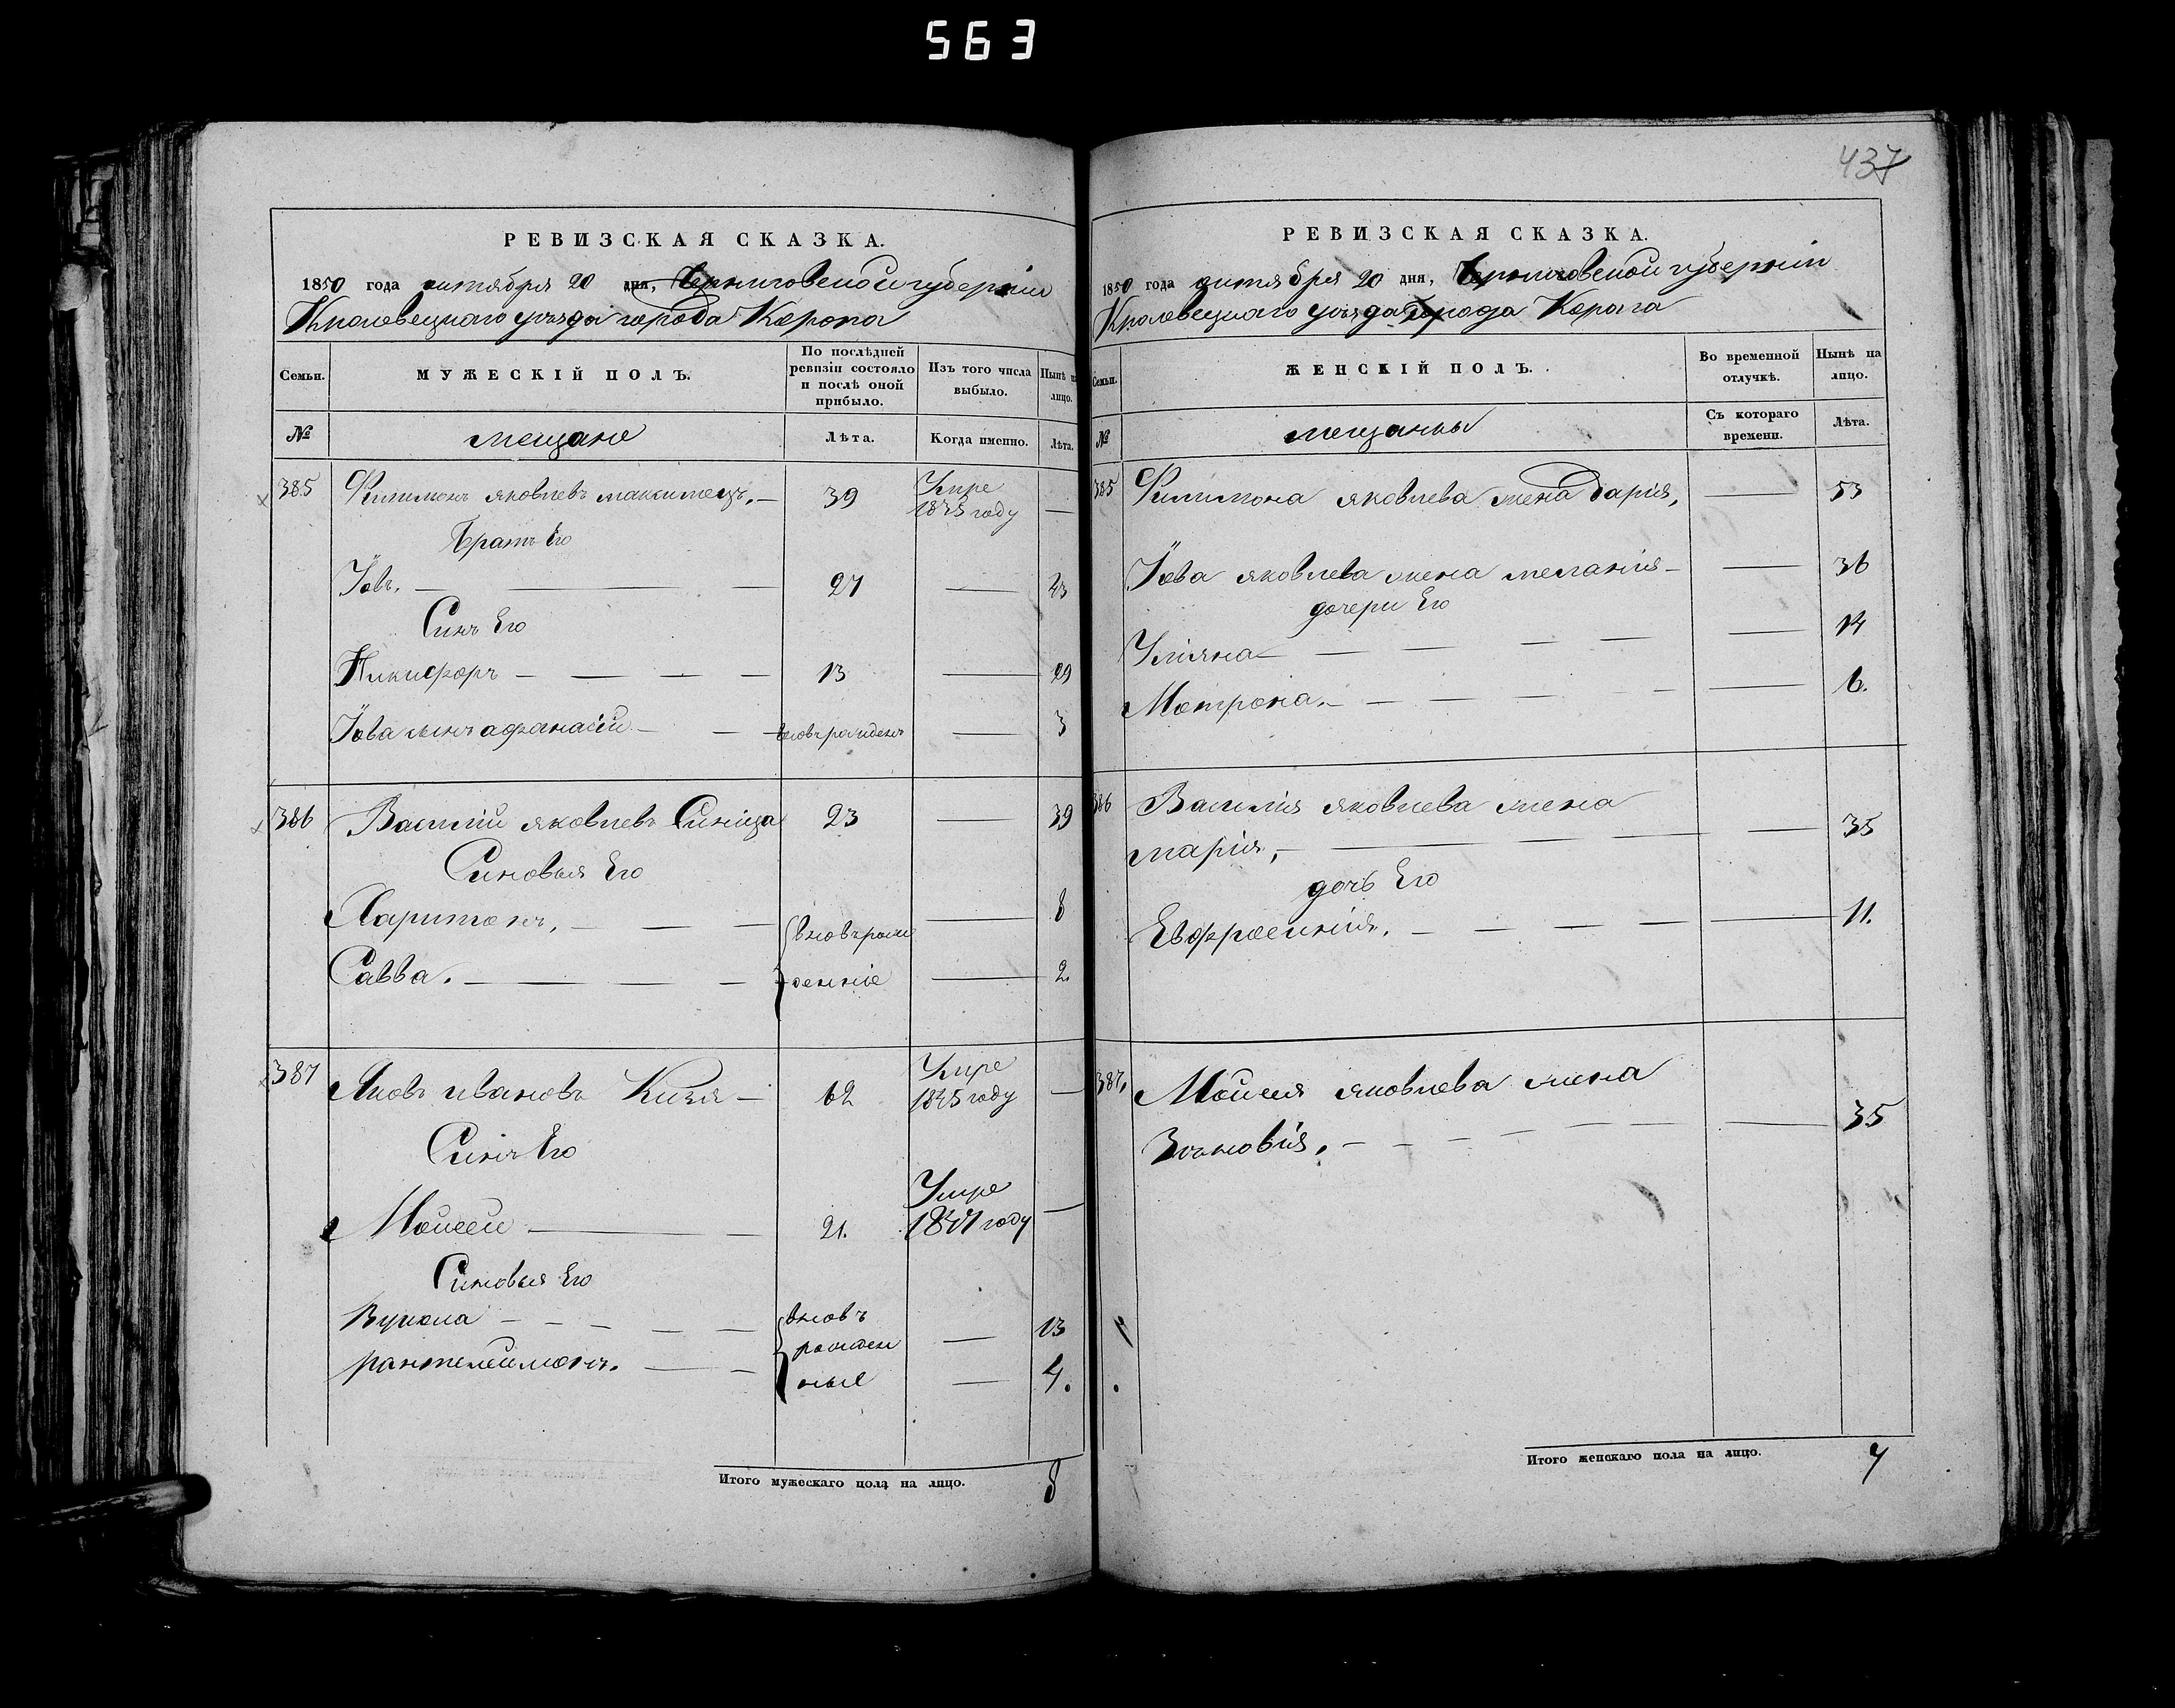 563
437
РЕВИЗСКАЯ СКАЗКА.
1850 года октября 20 дня, Черниговской губерніи
Кролевецкаго уѣзда города Коропа
Семьи.
МУЖЕСКІЙ ПОЛЪ.
По послѣдней ревизіи состояло и послѣ оной прибыло.
Изъ того числа выбыло.
Нынѣ на лицо.
№
мещане
Лѣта.
Когда именно.
Лѣта.
385 Филимонъ яковлевъ 39 Умре 1845 году —
Братъ Его
Іовъ. — 27 — 43
Синъ Его
Никифоръ — 13 — 29
Іова синъ афанасій — вновъ рожденъ — 3
386 Василій яковлевъ Синица 23 — 39
Синовья Его
Харитонъ, — 8
Савва. — 2.
вновъ рож
денніе
387 Яковъ ивановъ 62 Умре 1845 году —
Синъ Его
Моисей — 21. Умре году —
Синовья Его
Вукола — 13
пантелеимонъ. — 4.
вновъ
рожден
ные
Итого мужескаго пола на лицо. 8
РЕВИЗСКАЯ СКАЗКА.
1850 года октября 20 дня, Черниговской губерніи
Кролевецкаго уѣзда города Коропа
Семьи.
ЖЕНСКІЙ ПОЛЪ.
Во временной отлучкѣ.
Нынѣ на лицо.
№
мещанки
Съ котораго времени.
Лѣта.
385 Филимона яковлева жена Дарія, — 53
Іова яковлева жена меланія — 36
дочери Его
Уліяна — 14
Мотрона. — 6.
386 Василія яковлева жена
марія, — 35
дочь Его
Евфросинія. — 11.
387. Моисея яковлева жена
Зѣновія. — 35
Итого женскаго пола на лицо. 7